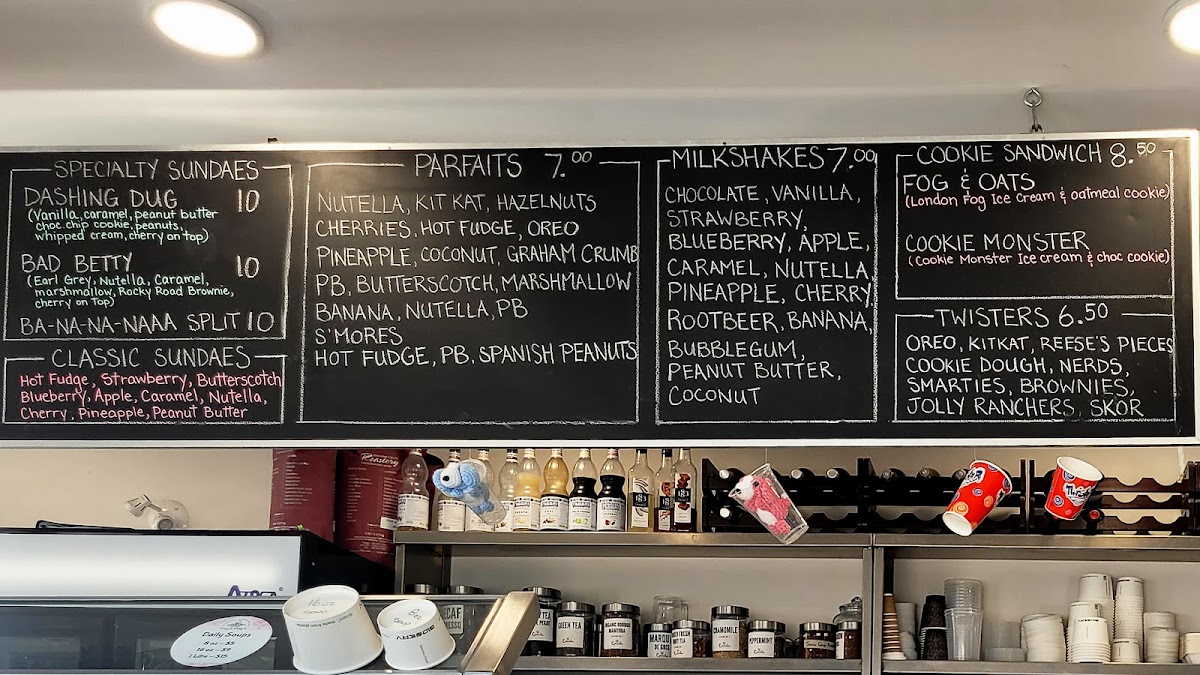 SPECIALTY SUNDAES
DASHING DUG 10
(Vanilla, caramel, peanut butter
choc.chip cookie, peanuts,
whipped cream, cherry on top)
BAD BETTY 10
(Earl Grey, Nutella, Caramel,
marshmallow, Rocky Road Brownie,
cherry on top)
BA-NA-NA-NAAA SPLIT 10
CLASSIC SUNDAES
Hot Fudge, Strawberry, Butterscotch
Blueberry, Apple, Caramel, Nutella,
Cherry, Pineapple, Peanut Butter
PARFAITS 7.00
NUTELLA, KIT KAT, HAZELNUTS
CHERRIES, HOT FUDGE, OREO
PINEAPPLE, COCONUT, GRAHAM CRUMB
PB, BUTTERSCOTCH, MARSHMALLOW
BANANA, NUTELLA, PB
S'MORES
HOT FUDGE, PB, SPANISH PEANUTS
MILKSHAKES 7.00
CHOCOLATE, VANILLA,
STRAWBERRY,
BLUEBERRY, APPLE,
CARAMEL, NUTELLA,
PINEAPPLE, CHERRY,
ROOTBEER, BANANA,
BUBBLEGUM,
PEANUT BUTTER,
COCONUT
COOKIE SANDWICH 8.50
FOG & OATS
(London Fog Ice Cream & oatmeal cookie)
COOKIE MONSTER
(Cookie Monster Ice cream & choc cookie)
TWISTERS 6.50
OREO, KITKAT, REESE'S PIECES
COOKIE DOUGH, NERDS,
SMARTIES, BROWNIES,
JOLLY RANCHERS, SKOR
Roastery
16oz
8oz
Soup
Daily Soups
8 oz - $5
16 oz - $9
1 Litre - $15
GREEN TEA
ORGANIC ROOIBOS
CHAMOMILE
PEPPERMINT